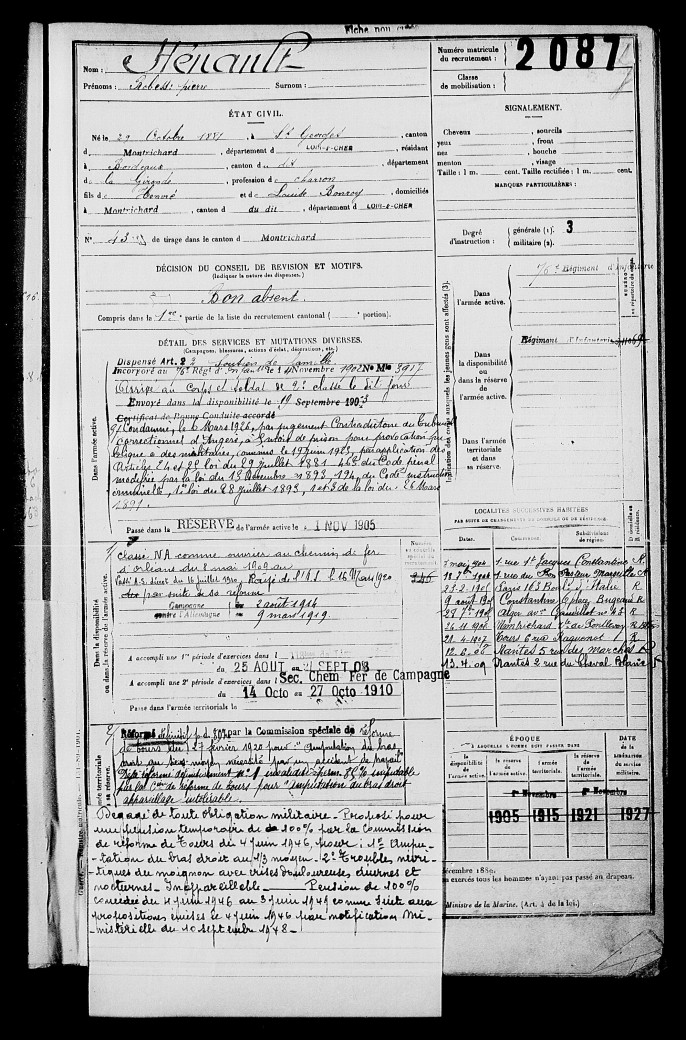 Fiche non
Nom : Hénault
Prénoms : Robest-pierre Surnom :
Numéro matricule du recrutement : 2087
Classe de mobilisation :
ÉTAT CIVIL.
Né le 29 Octobre 1881, à St Georges, canton
d Montrichard, département d LOIR-&-CHER, résidant
à Bordeaux, canton d u dit, département
de la Gironde, profession de charron
fils de Honoré et de Louise Bonroy, domiciliés
à Montrichard, canton d du dit, département d LOIR-&-CHER
N° 43 de tirage dans le canton d Montrichard
DÉCISION DU CONSEIL DE REVISION ET MOTIFS.
(Indiquer la nature des dispenses.)
Bon absent
Compris dans le 1re partie de la liste du recrutement cantonal ( portion).
DÉTAIL DES SERVICES ET MUTATIONS DIVERSES.
(Campagnes, blessures, actions d'éclat, décorations, etc.)
Dans l'armée active.
Dispensé Art. 22 Soutien de famille
Incorporé au 76e Régt d'Infanterie le 14 Novembre 1902 No Mle 3917
Arrivé au Corps et Soldat de 2e classe le dit jour
Envoyé dans la disponibilité le 19 Septembre 1903
Certificat de Bonne Conduite accordé
Condamné, le 6 Mars 1924, par jugement Contradictoire du tribunal
correctionnel d'Angers, à de prison pour provocation pu-
blique a des militaires, commise le 19 Juin 1923, par application des
Articles 24 et 28 loi du 29 Juillet 1881 - 463 du Code pénal
modifié par la loi du 13 Décembre 1893, 194 du Code d'instruction
criminelle, loi du 28 Juillet 1893, 1 et 3 de la loi du 26 Mars
1891.
Passé dans la RÉSERVE de l'armée active le 1 NOV 1905
Dans la disponibilité ou dans la réserve de l'armée active.
Classé N.A comme ouvrier au chemin de fer
d'Orléans du 8 mai 1908 au
Rayé de l'A.S. le 16 Mars 1920
par suite de sa réforme
Campagne contre l'Allemagne
2 août 1914
9 mars 1919
346
A accompli une 1re période d'exercices dans l
du 25 AOUT au 21 SEPT 08
A accompli une 2e période d'exercices dans l Sec. Chem Fer de Campagne
du 14 Octo au 27 Octo 1910
Passé dans l'armée territoriale le
Réformé définitif par la Commission spéciale de réforme
de Tours du 27 février 1920 pour "amputation du bras
droit au tiers moyen nécessité par un accident de travail"
Déjà réformé définitivement N° 1 invalidité 85% imputable
par la Con de réforme de Tours pour "amputation du bras droit
appareillage intolérable.
Dégagé de toute obligation militaire - Proposé pour
une pension temporaire de 100% par la Commission
de réforme de Tours du 4 juin 1946, pour : 1° Ampu-
tation du bras droit au 1/3 moyen - 2° Troubles névri-
tiques du moignon avec crises douloureuses diurnes et
nocturnes. Inappareillable — Pension de 100%
concédée du 4 juin 1946 au 3 juin 1949 comme suite aux
propositions émises le 4 juin 1946 par notification Mi-
nistérielle du 10 septembre 1948 -
SIGNALEMENT.
Cheveux , sourcils
yeux , front
nez , bouche
menton , visage
Taille : 1 m. cent. Taille rectifiée : 1 m. cent.
MARQUES PARTICULIÈRES :
Degré d'instruction : générale (1). 3
militaire (2).
Dans l'armée active.
76e Régiment d'Infanterie
Dans la disponibilité ou dans la réserve de l'armée active.
Régiment d'Infanterie
Dans l'armée territoriale et dans sa réserve.
LOCALITÉS SUCCESSIVES HABITÉES
PAR SUITE DE CHANGEMENTS DE DOMICILE OU DE RÉSIDENCE.
Dates. Communes. Subdivisions de région. Domicile ou Résidence.
7 mai 1904 1 rue St Jacques Constantine R.
18 7bre 1904 1 rue du Marseille R
23-2-1905 Paris 163 Boul. d'Italie R
9 août 190 Constantine 6 place Bugeaud R
28 1904 Alger av. Gandillot n° 25 R
26.11.1906 Montrichard Pontlevoy R
28.4.1907 Tours 6 rue Raguenot R
12.6.08 Nantes 5 rue des marches R
13.4.09 Nantes 2 rue du Cheval Blanc R
ÉPOQUE
À LAQUELLE L'HOMME DOIT PASSER DANS
la disponibilité de l'armée active. la réserve de l'armée active. l'armée territoriale. la réserve de l'armée territoriale. DATE de la LIBÉRATION du service militaire.
1er Novembre 1er Novembre
1905 1915 1921 1927
décembre 1889.
exercés tous les hommes n'ayant pas passé au drapeau.
Ministre de la Marine. (Art. 4 de la loi.)